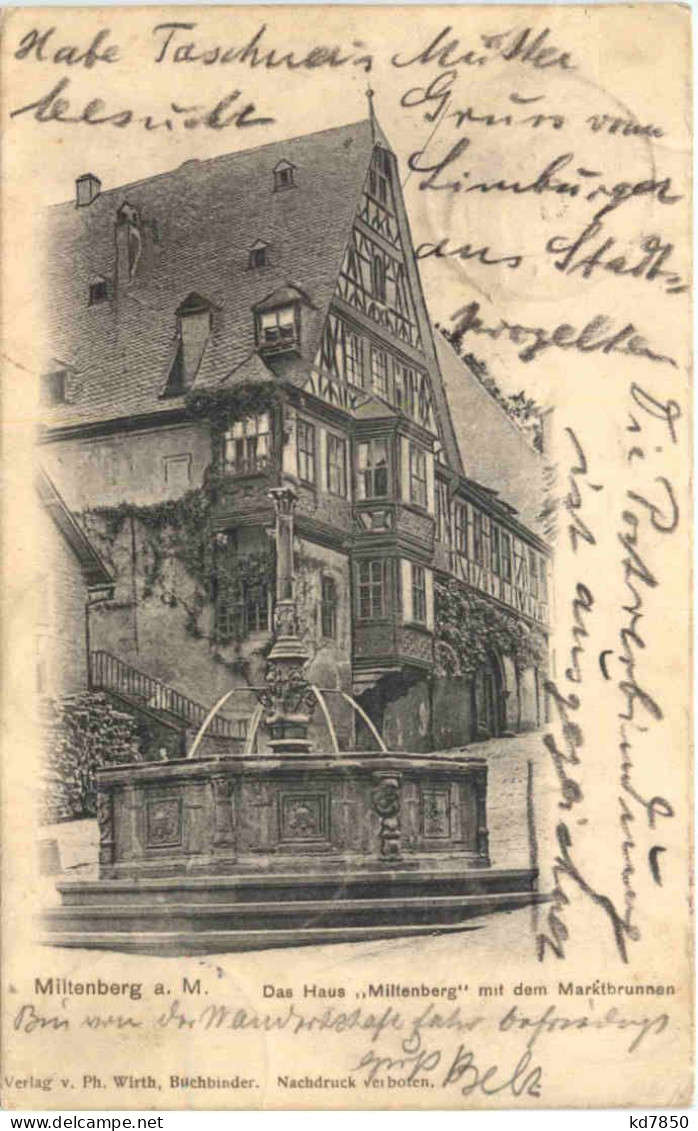 Habe Taschner's Mutter
besucht
Gruss vom
Limburger
aus Stadt-
prozelten
Die Postverbindung
ist ausgezeichnet
Miltenberg a. M.
Das Haus „Miltenberg" mit dem Marktbrunnen
Bin von der Wanderschaft sehr befriedigt
Gruß Belz
Verlag v. Ph. Wirth, Buchbinder. Nachdruck verboten.
kd7850